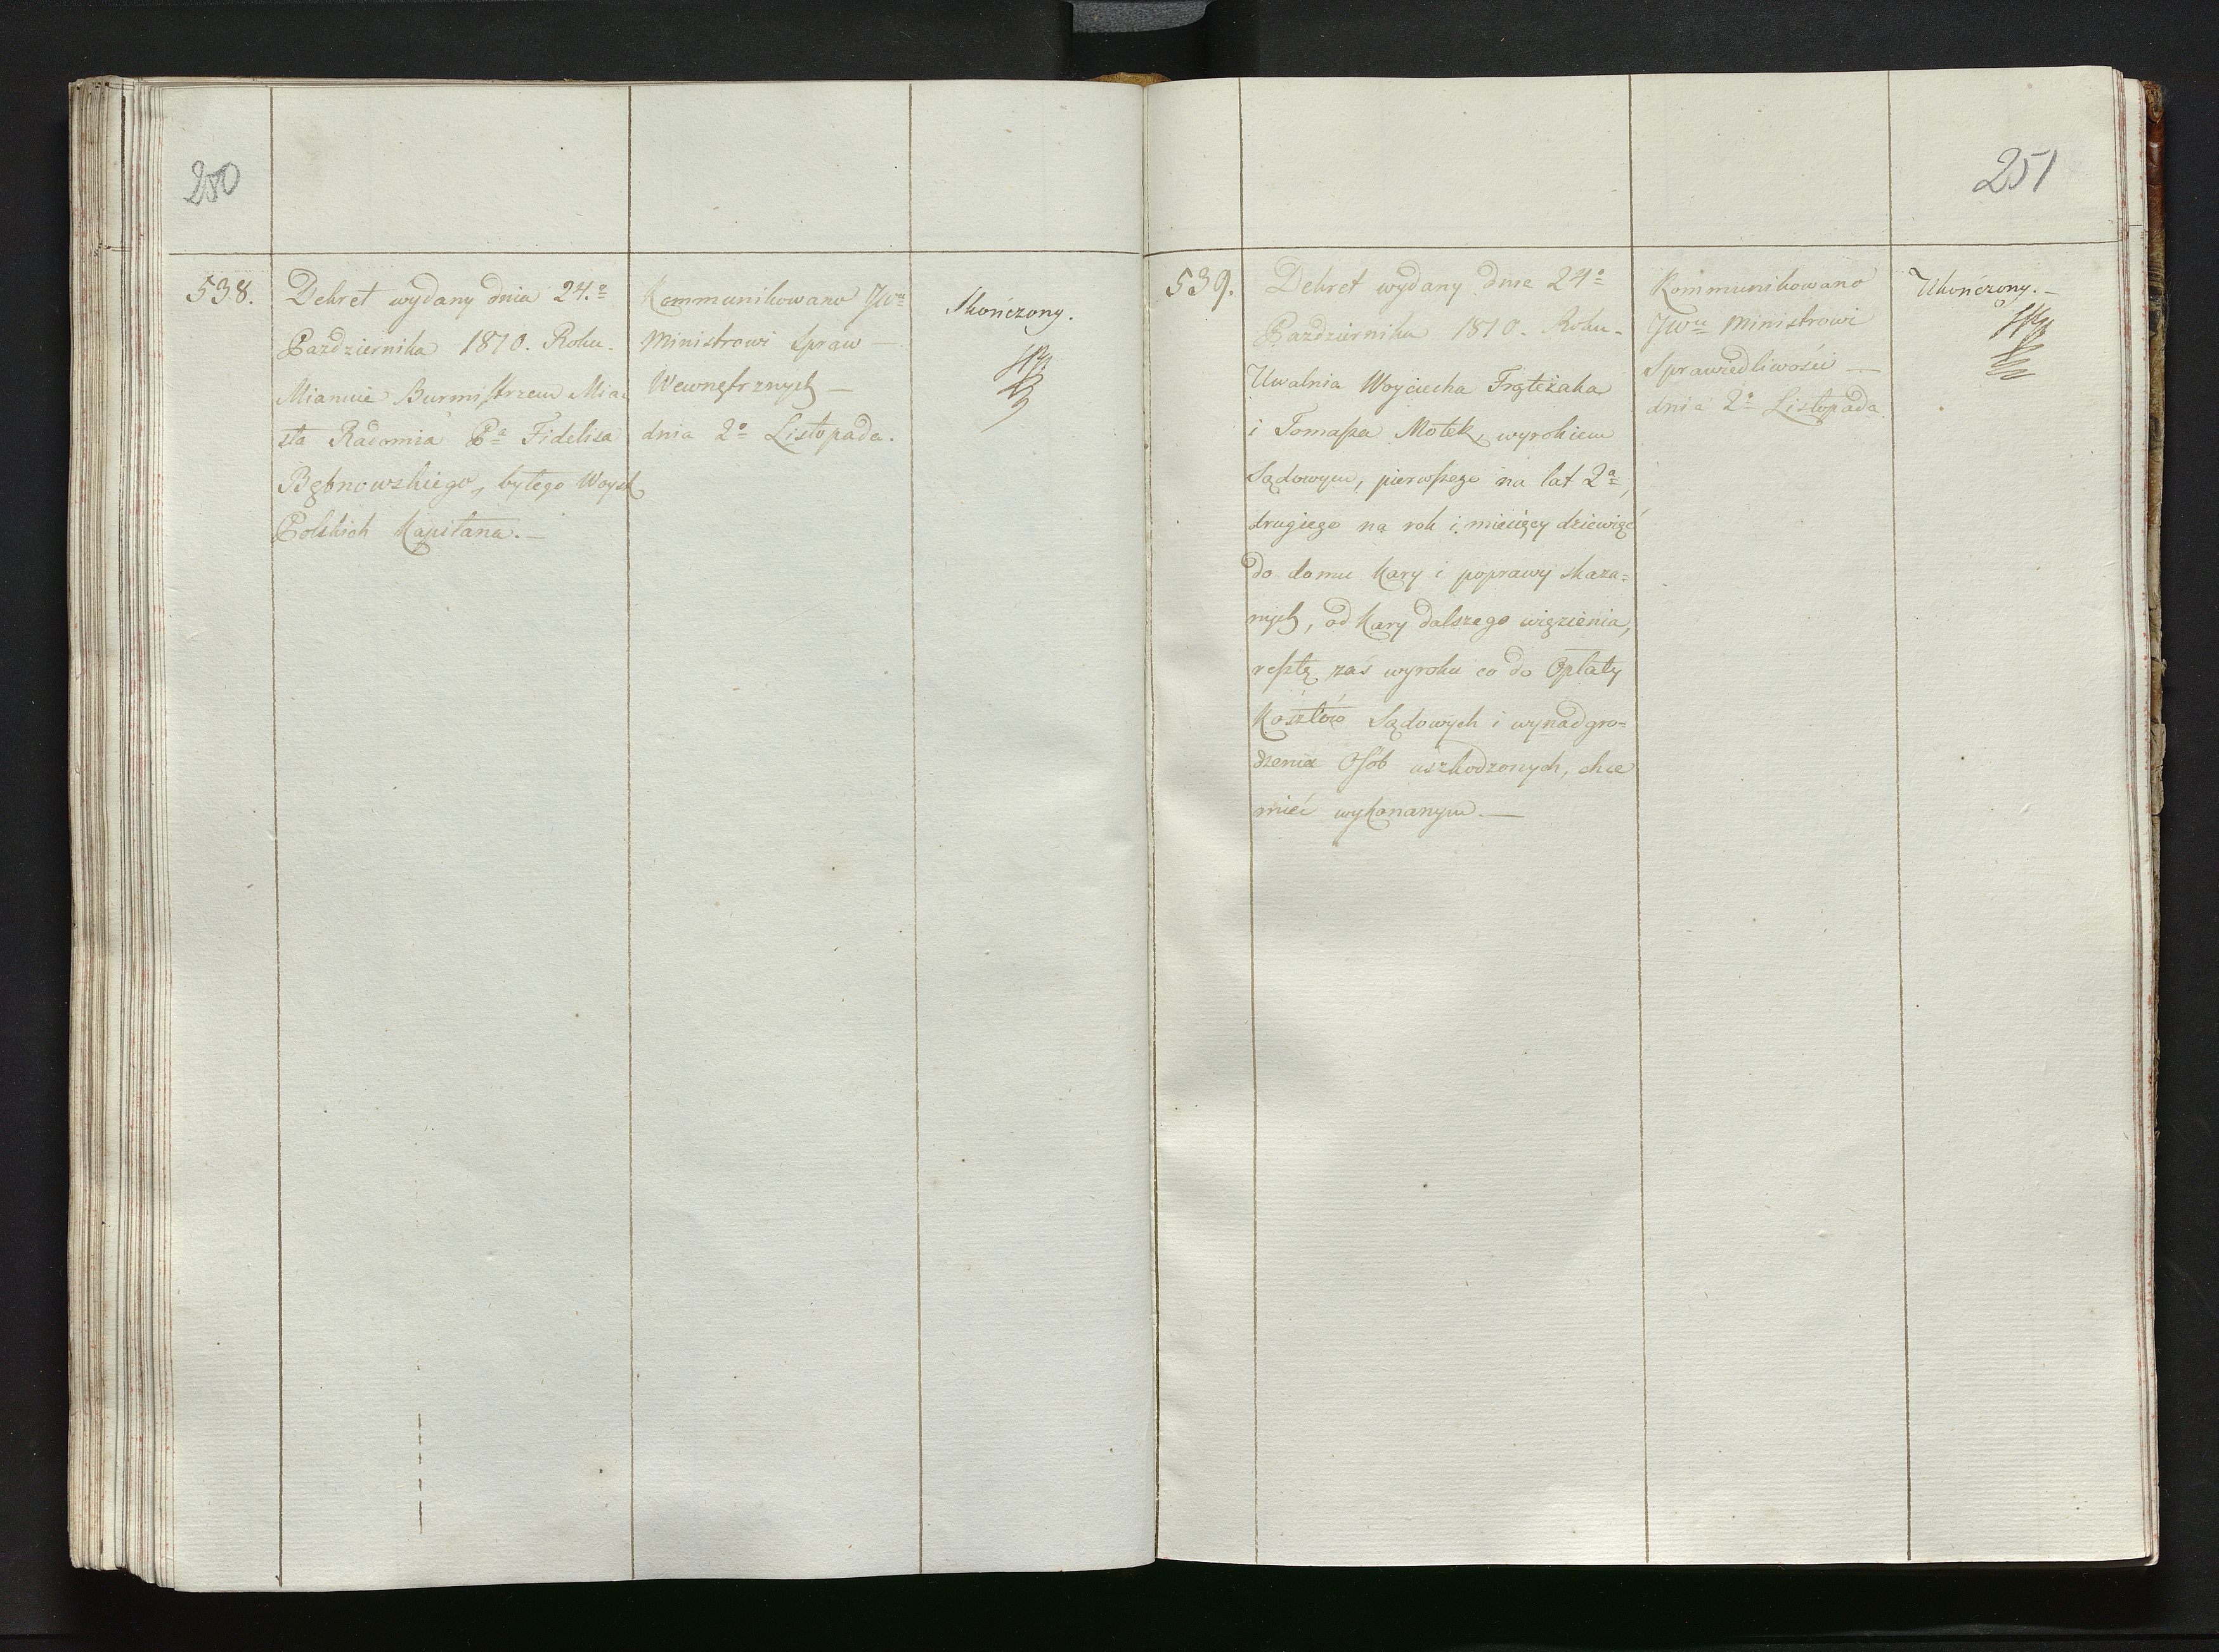 250
538.
Dekret wydany dnia 24.o
Pazdziernika 1810. Roku.
Mianuie Burmistrzem Mia=
sta Radomia Pa Fidelisa
Bębnowskiego, byłego Woysk
Polskich Kapitana. —
Kommunikowano JWu
Ministrowi Spraw —
Wewnętrznych —
dnia 2o Listopada.
Skończony.
251
539.
Dekret wydany dnia 24o
Pazdziernika 1810. Roku.
Uwalnia Woyciecha Frąteżaka
i Tomasza Motek, wyrokiem
Sądowym, pierwszego na lat 2a,
drugiego na rok i miesięcy dziewięć
do domu Kary i poprawy skaza=
nych, od Kary dalszego więzienia,
resztę zaś wyroku co do Opłaty
Kosztów Sądowych i wynadgro=
dzenia Osób uszkodzonych, chce
mieć wykonanym —
Kommunikowano
JWu Ministrowi
Sprawiedliwości —
dnia 2o Listopada.
Ukończony. —